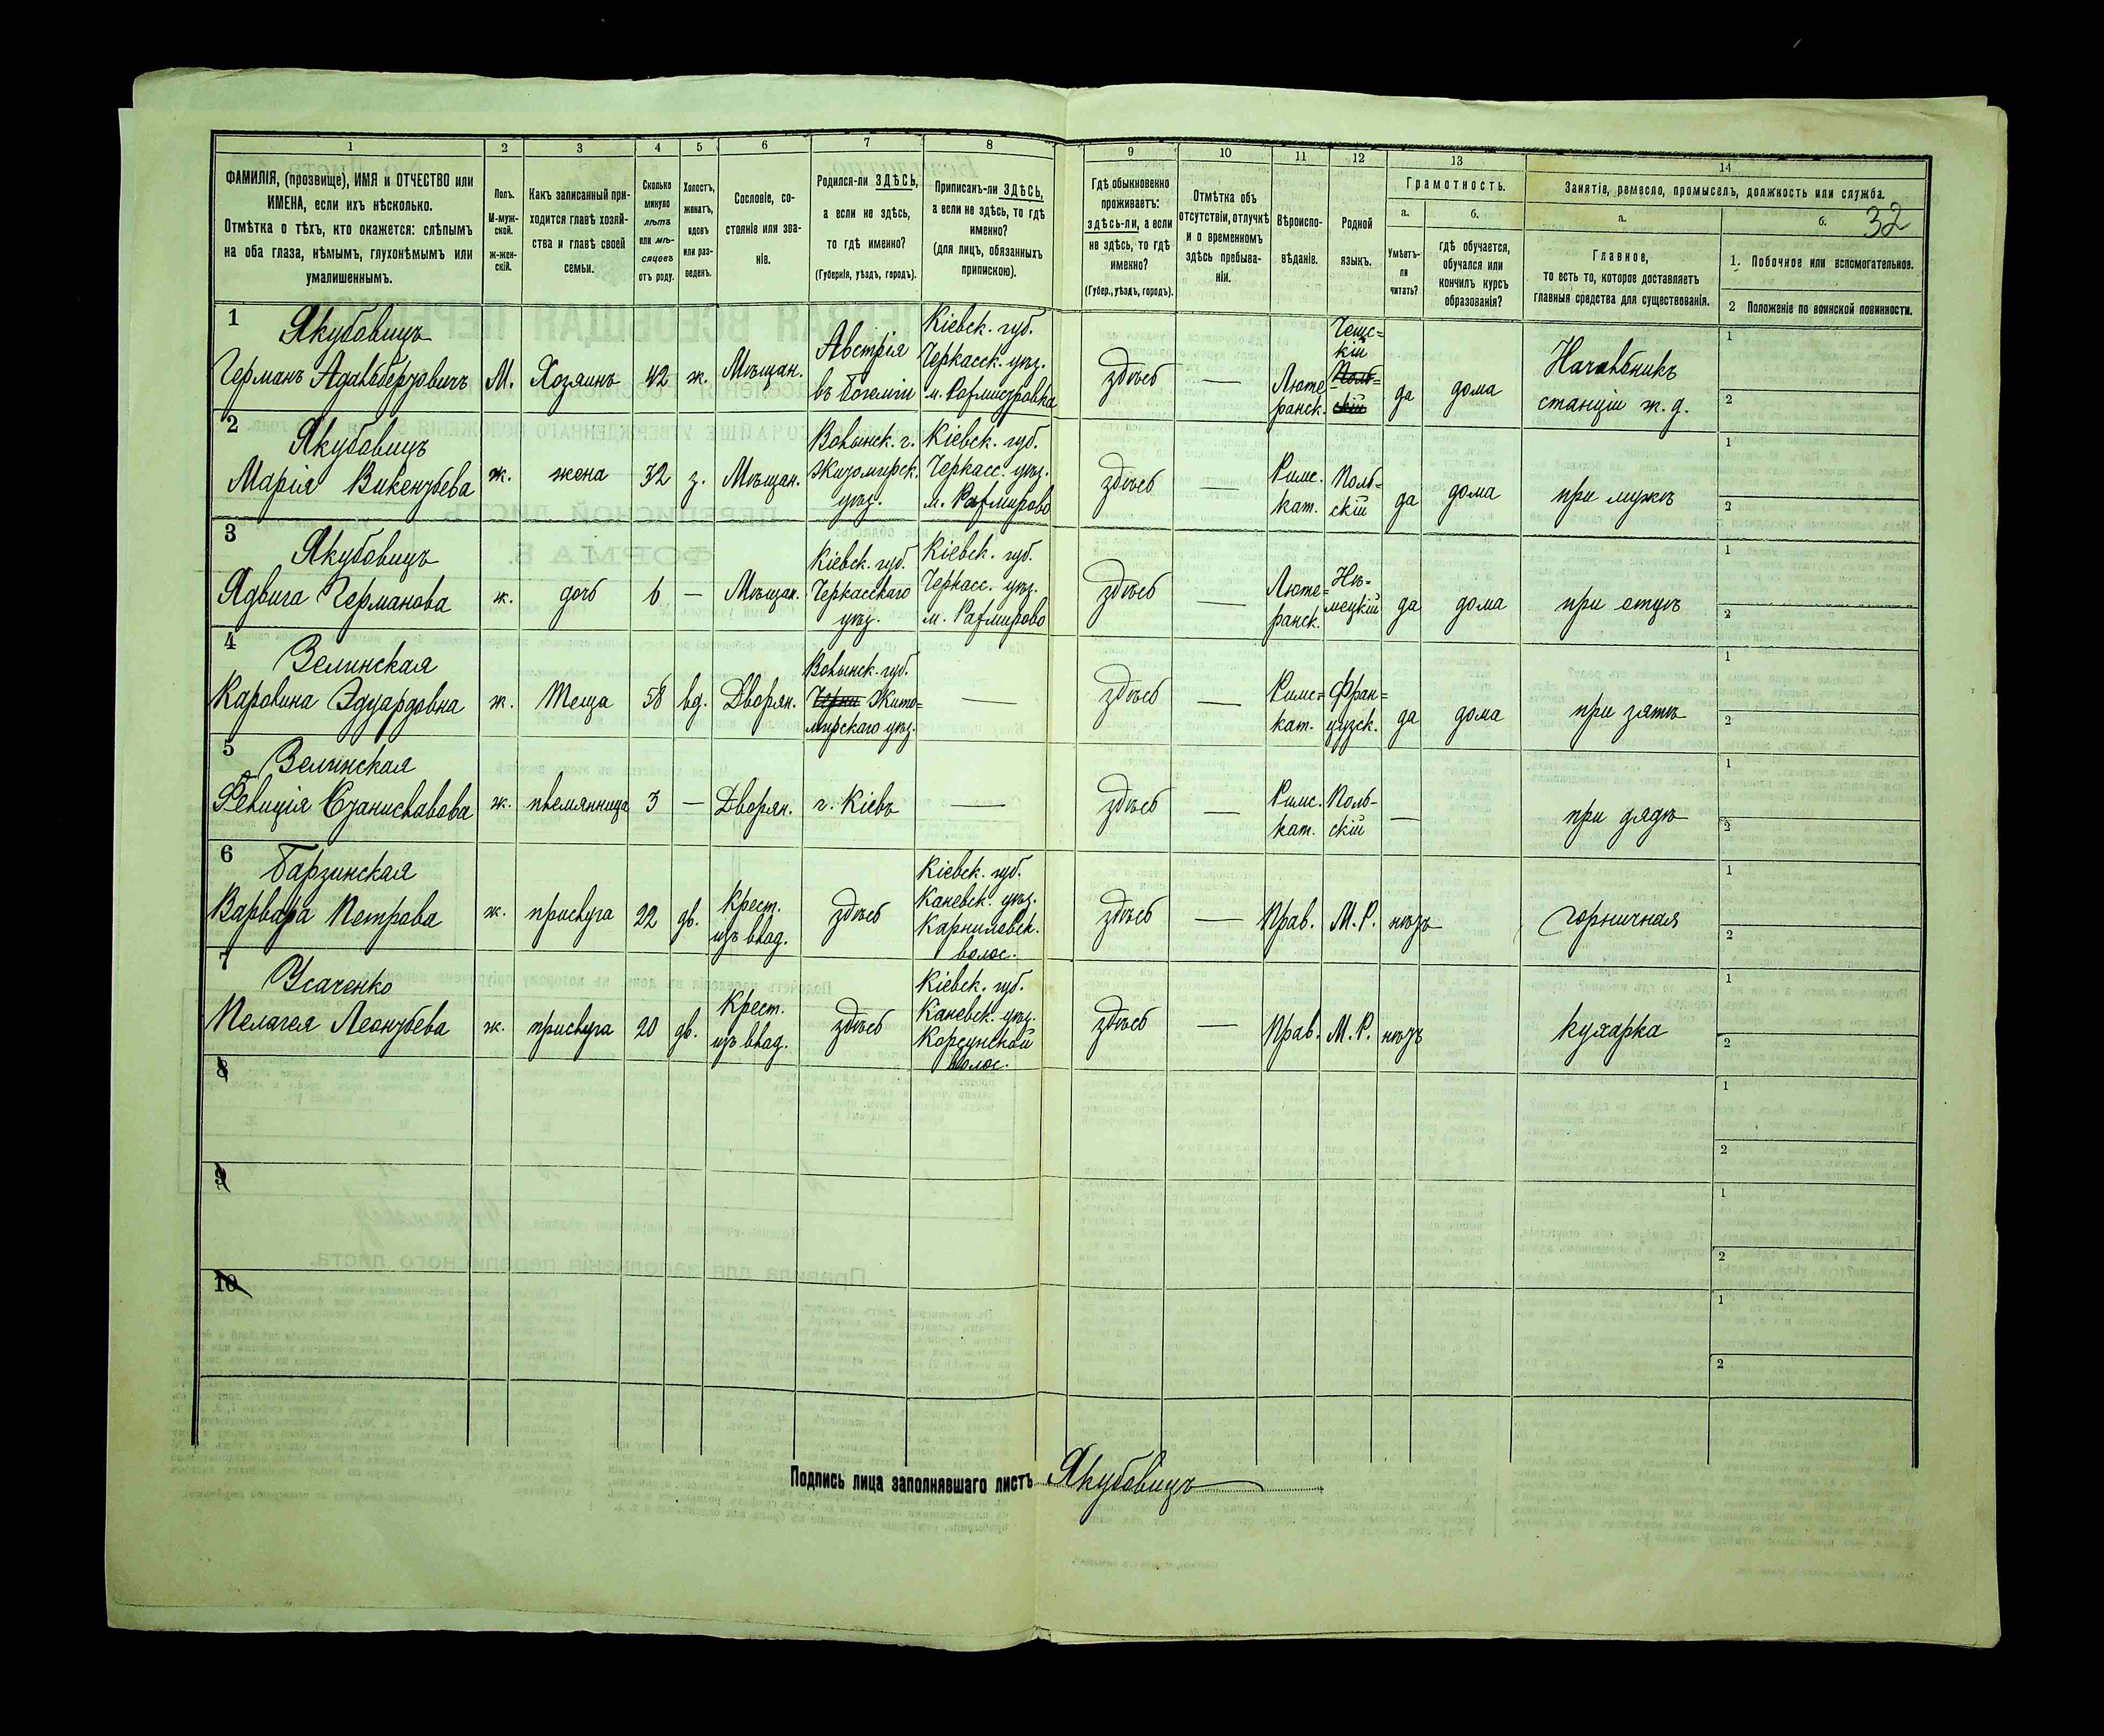 1
2
3
4
5
6
7
8
9
10
11
12
13
14
ФАМИЛІЯ, (прозвище), ИМЯ и ОТЧЕСТВО или
ИМЕНА, если ихъ нѣсколько.
Отмѣтка о тѣхъ, кто окажется: слѣпымъ
на оба глаза, нѣмымъ, глухонѣмымъ или
умалишеннымъ.
Полъ.
М-муж-
ской.
Ж-жен-
скій.
Какъ записанный при-
ходится главѣ хозяй-
ства и главѣ своей
семьи.
Сколько
минуло
лѣтъ
или мѣ-
сяцевъ
отъ роду.
Холостъ,
женатъ,
вдовъ
или раз-
веденъ.
Сословіе, со-
стояніе или зва-
ніе.
Родился-ли ЗДѢСЬ,
а если не здѣсь,
то гдѣ именно?
(Губернія, уѣздъ, городъ).
Приписанъ-ли ЗДѢСЬ,
а если не здѣсь, то гдѣ
именно?
(для лицъ, обязанныхъ
припискою).
Гдѣ обыкновенно
проживаетъ:
здѣсь-ли, а если
не здѣсь, то гдѣ
именно?
(Губер., уѣздъ, городъ).
Отмѣтка объ
отсутствіи, отлучкѣ
и о временномъ
здѣсь пребыва-
ніи.
Вѣроиспо-
вѣданіе.
Родной
языкъ.
Грамотность.
а.
Умѣетъ-
ли
читать?
б.
гдѣ обучается,
обучался или
кончилъ курсъ
образованія?
Занятіе, ремесло, промыселъ, должность или служба.
а.
Главное,
то есть то, которое доставляетъ
главныя средства для существованія.
б.
32
1. Побочное или вспомогательное.
2 Положеніе по воинской повинности.
1
Якубовицъ
Германъ Адальбертовичъ
М.
Хозяинъ
42
ж.
Мѣщан.
Австрія
въ Богеміи
Кіевск. губ.
Черкасск. уѣз.
здѣсь
—
Люте
ранск.
Чешс=
кій
Поль=
скій
да
дома
Начальникъ
станціи ж. д.
1
2
2
Якубовицъ
Марія Викентьева
ж.
жена
32
з.
Мѣщан.
Волынск. г.
Житомирск.
уѣз.
Кіевск. губ.
Черкасс. уѣз.
здѣсь
—
Римс.
кат.
Поль=
скій
да
дома
при мужѣ
1
2
3
Якубовицъ
Ядвига Германова
ж.
дочь
6
—
Мѣщан.
Кіевск. губ.
Черкасскаго
уѣз.
Кіевск. губ.
Черкасс. уѣз.
здѣсь
—
Люте=
ранск.
Нѣ-
мецкій
да
дома
при отцѣ
1
2
4
Зелинская
Каролина Эдуардовна
ж.
Теща
58
вд.
Дворян.
Волынск. губ.
Жито=
мирскаго уѣз.
—
здѣсь
—
Римс=
кат.
Фран=
цузск.
да
дома
при зятѣ
1
2
5
Зелинская
Фелиція Станиславова
ж.
племянница
3
—
Дворян.
г. Кіевъ
—
здѣсь
—
Римс.
кат.
Поль-
скій
—
при дядѣ
1
2
6
Барзинская
Варвара Петрова
ж.
прислуга
22
дѣ.
Крест.
изъ влад.
здѣсь
Кіевск. губ.
Каневск. уѣз.
Карниловск.
волос.
здѣсь
—
Прав.
М. Р.
нѣтъ
горничная
1
2
7
Усаченко
Пелагея Леонтьева
ж.
прислуга
20
дѣ.
Крест.
изъ влад.
здѣсь
Кіевск. губ.
Каневск. уѣз.
Корсунской
волос.
здѣсь
—
Прав.
М. Р.
нѣтъ
кухарка
1
2
8
1
2
9
1
2
10
1
2
Подпись лица заполнявшаго листъ Якубовицъ